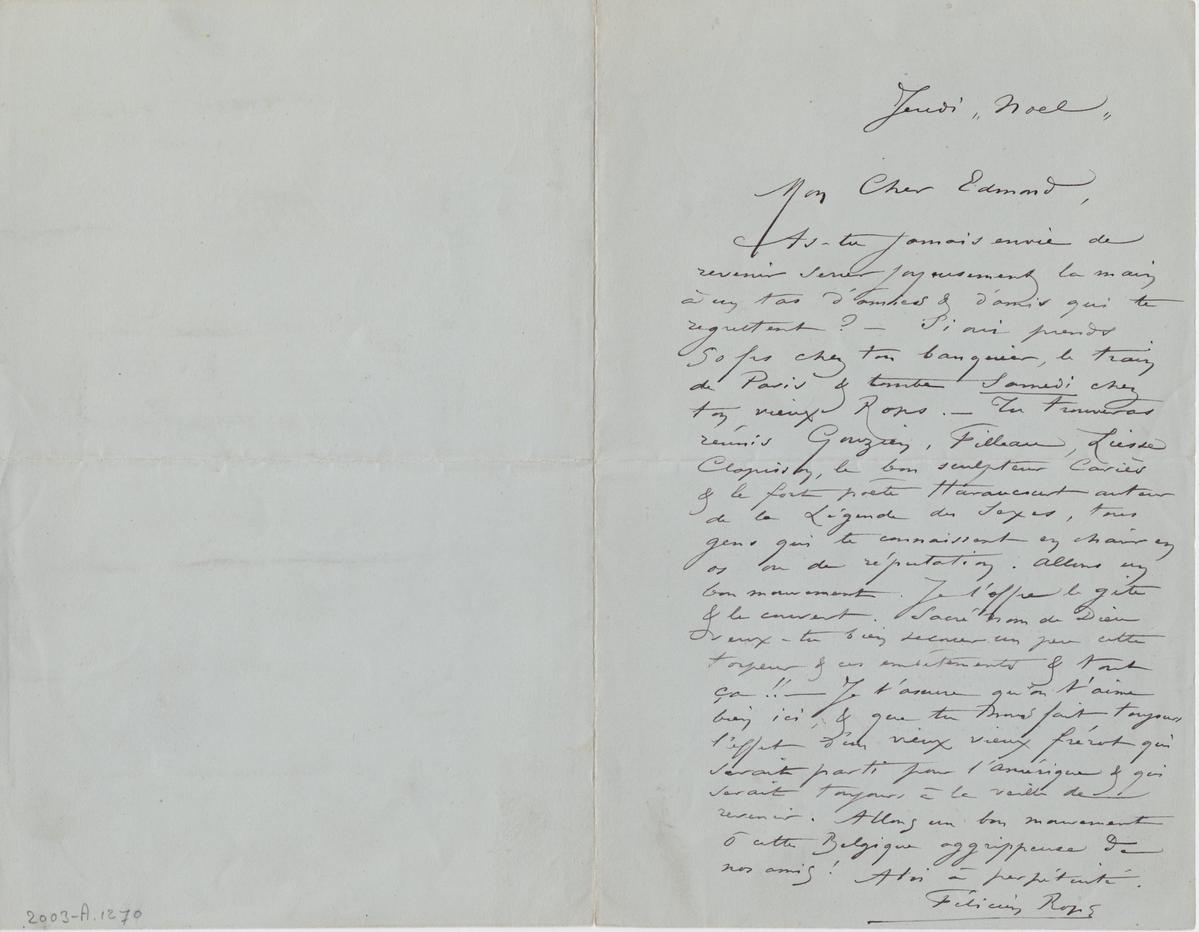 Jeudi „ Noel „
Mon Cher Edmond,
As-tu jamais envie de
revenir serrer joyeusement la main
à un tas d'amies & d'amis qui te
regrettent ? — Si oui prends
50 frs chez ton banquier, le train
de Paris & tombe Samedi chez
ton vieux Rops. — Tu trouveras
réunis Gouzien, Filleau, Liesse
Clapisson, le bon sculpteur Cariès
& le fort poëte Haraucourt auteur
de la Légende des Sexes, tous
gens qui te connaissent en chair en
os ou de réputation. Allons un
bon mouvement. Je t'offre le gîte
& le couvert. Sacré nom de Dieu
veux-tu bien secouer un peu cette
torpeur & ces embêtements & tout
ça !! — Je t'assure qu'on t'aime
bien ici, & que tu nous fait toujours
l'effet d'un vieux vieux frérot qui
serait parti pour l'Amérique & qui
serait toujours à la veille de
revenir. Allons un bon mouvement
ô cette Belgique aggrippeuse de
nos amis ! A toi à perpétuité.
Félicien Rops
2003-A.1270